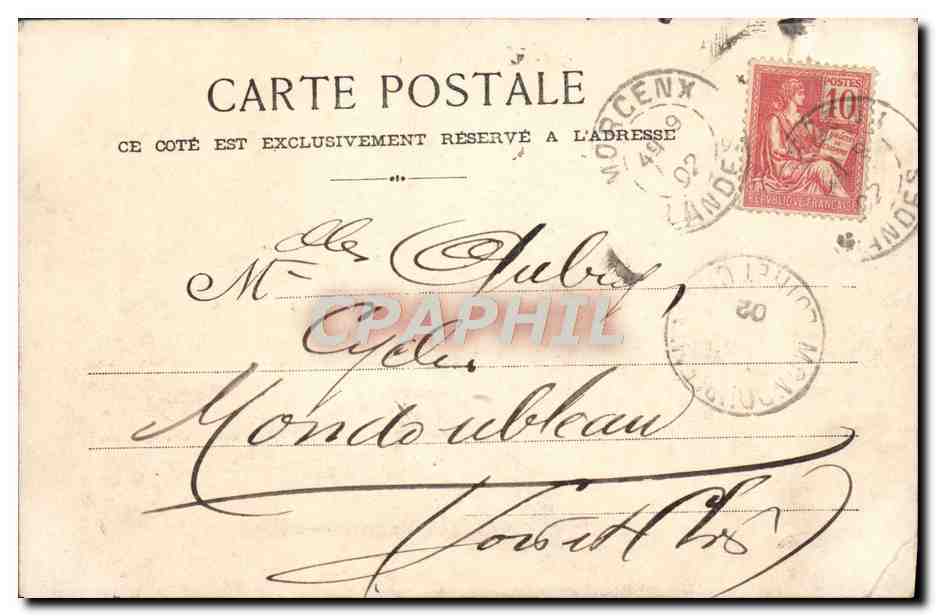 CARTE POSTALE
CE COTÉ EST EXCLUSIVEMENT RÉSERVÉ A L'ADRESSE
MORCENX
19 02
LANDES
POSTES
10
REPUBLIQUE FRANCAISE
LANDES
Melles Aubry,
CPAPHIL
Cycles
02
Mondoubleau
Loir et Cher